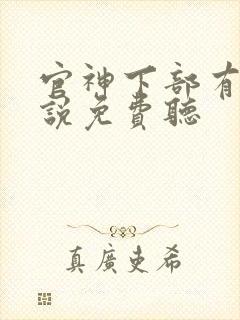 官神下部有
説免費聽
真廣史希